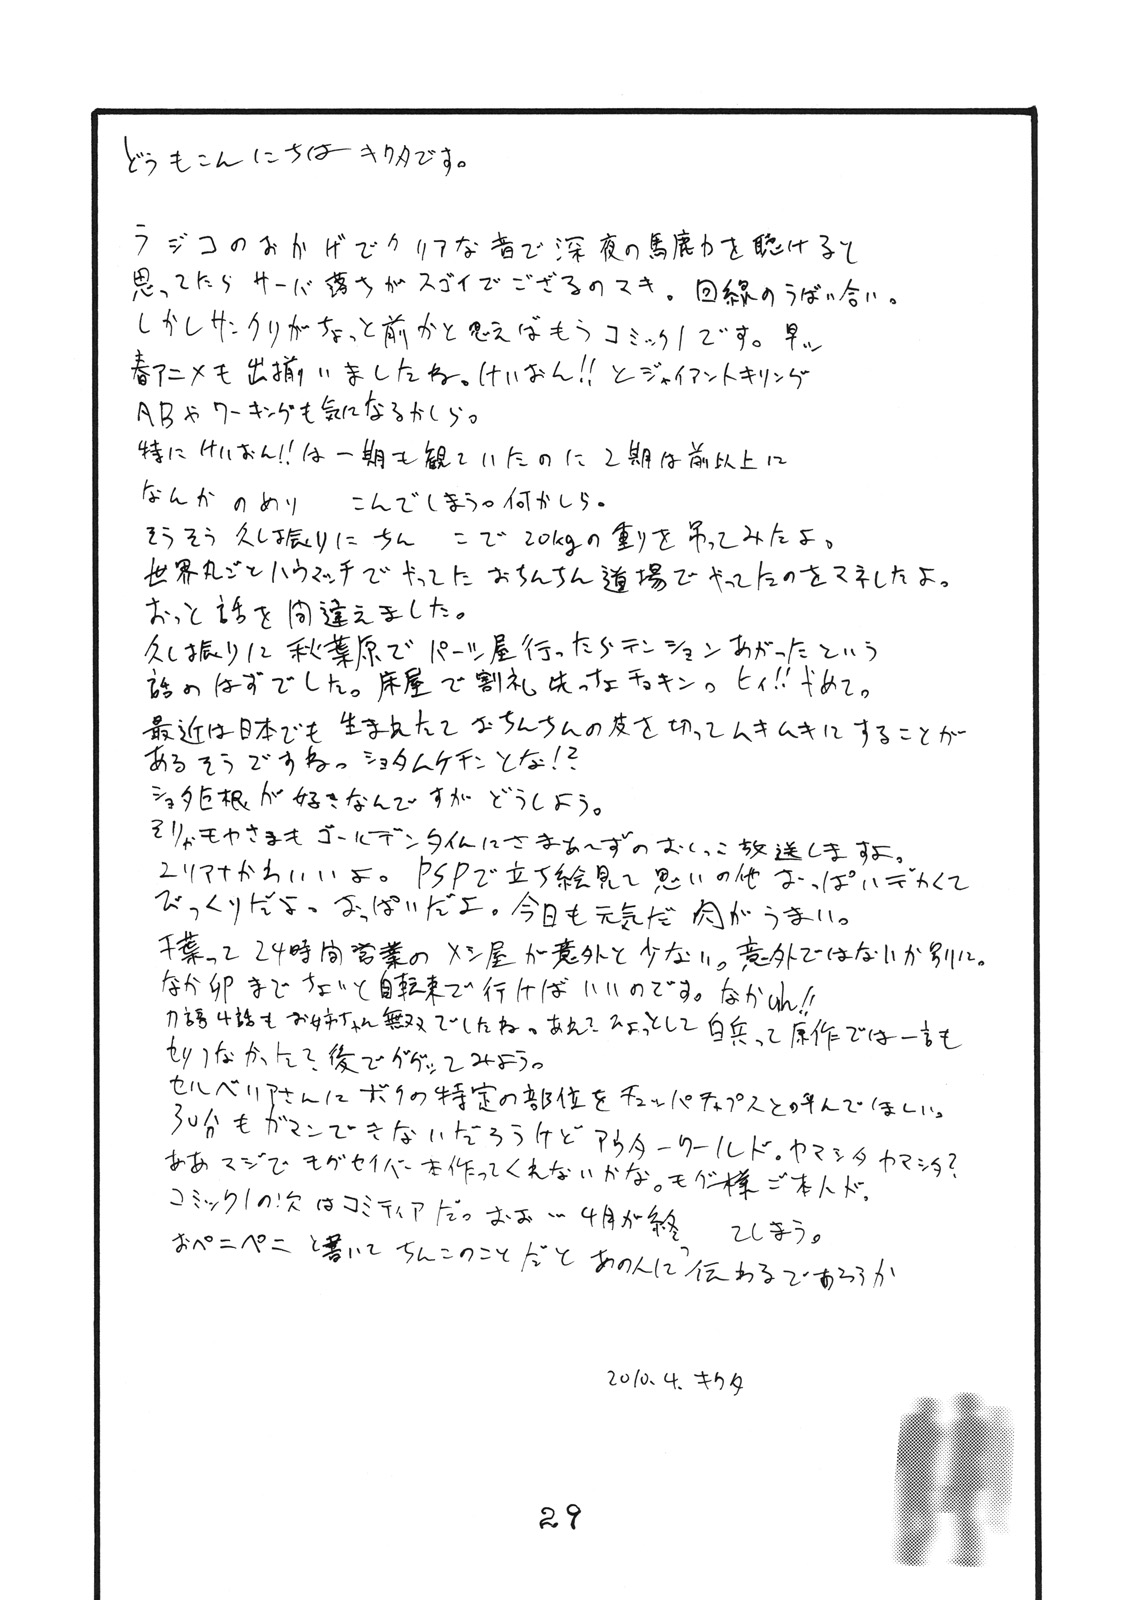 どうもこんにちはキクタです。
ラジコのおかげでクリアな音で深夜の馬鹿力を聴けると
思ってたらサーバ落ちがスゴイでござるのマキ。回線のうばい合い。
しかしサンクリがちょっと前かと思えばもうコミック1です。早ッ
春アニメも出揃いましたね。けいおん!!とジャイアントキリング
ABやワーキングも気になるかしら。
特にけいおん!!は一期も観ていたのに2期は前以上に
なんかのめり こんでしまう。何かしら。
そうそう久し振りにちん こで20kgの重りを吊ってみたよ。
世界丸ごとハウマッチでやってたおちんちん道場でやってたのをマネしたよ。
おっと話を間違えました。
久し振りに秋葉原でパーツ屋行ったらテンションあがったという
話のはずでした。床屋で割礼 先っちょチョキン。ヒィ!!やめて。
そりゃもやさまもゴールデンタイムにさまぁ〜ずのおしっこ放送しますよ。
ユリアナかわいいよ。PSPで立ち絵見て思いの他おっぱいデカくて
びっくりだよ。おっぱいだよ。今日も元気だ肉がうまい。
千葉って24時間営業のメシ屋が意外と少ない。意外ではないか別に。
なか卯までちょいと自転車で行けばいいのです。なかuん!!
刀語4話もお姉ちゃん無双でしたね。あれ?ひょっとして白兵って原作では一言も
セリフなかった?後でググッてみよう。
セルベリアさんにボクの特定の部位をチュッパチャプスと呼んでほしい。
30分もガマンできないだろうけどアウターワールド。ヤマシタヤマシタ?
ああマジでモグセイバー本作ってくれないかな。モグ様ご本人が。
コミック1の次はコミティアだっおお…4月が終 てしまう。
おペニペニと書いてちんこのことだとあの人に伝わるであろうか
2010.4.キクタ
29